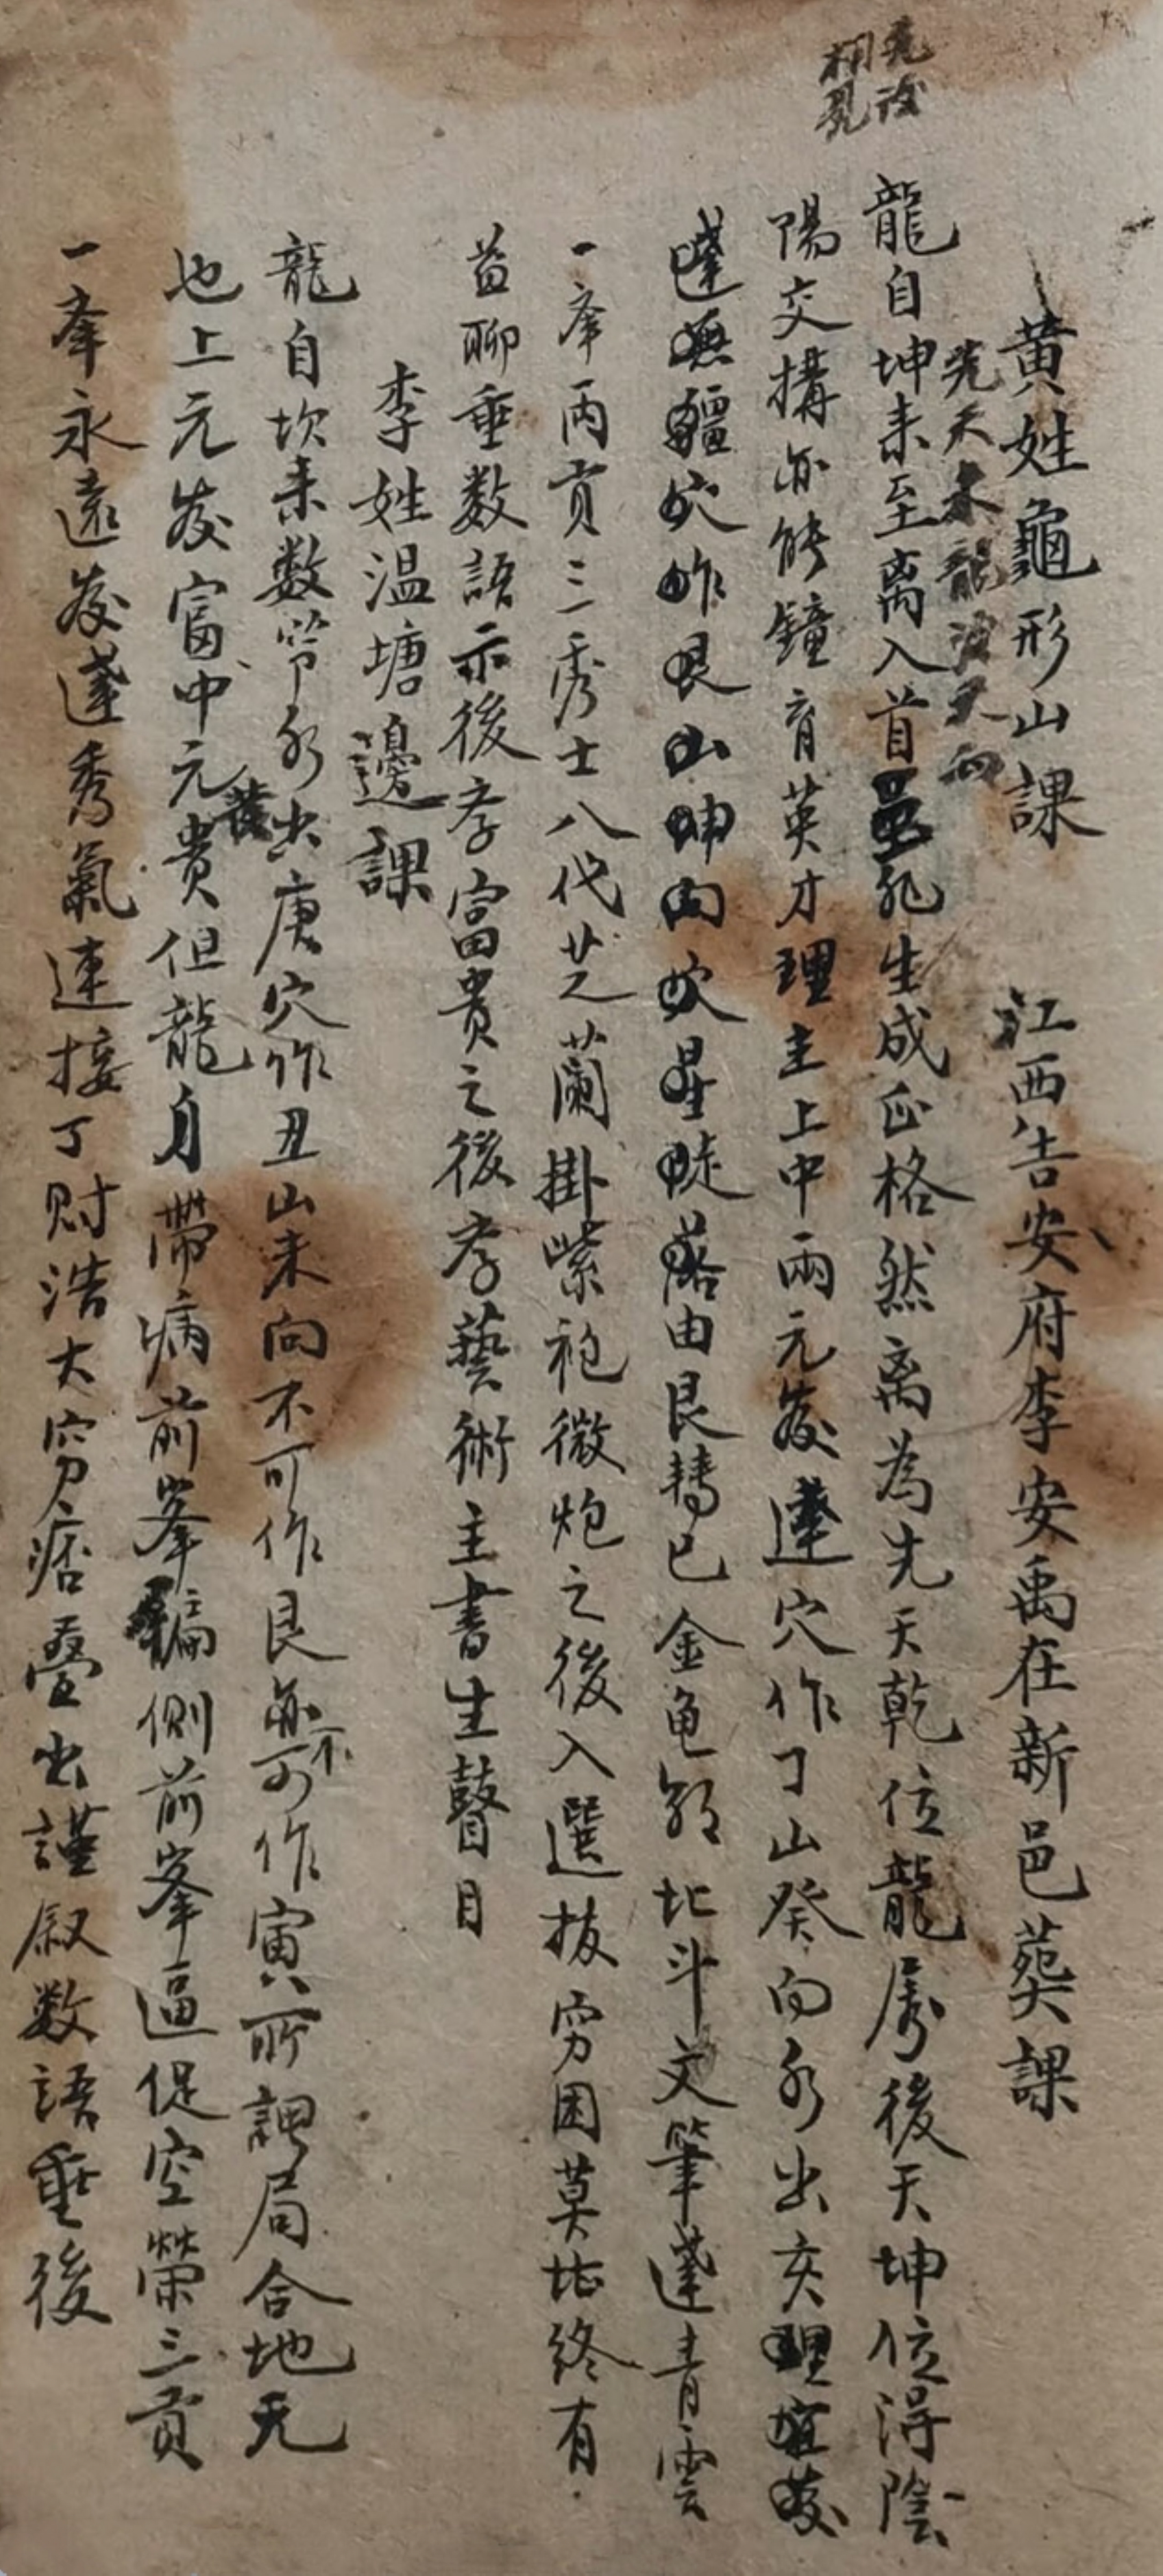 黃姓龜形山課　江西吉安府李安禹在新邑葬課
先天來龍
先後
相見
龍自坤来至离入首 生成正格然离為先天乾位龍属後天坤位淂陰
陽交搆亦能鐘育英才理主上中兩元發達穴作丁山癸向水出亥理宜發
達無疆穴作艮山坤向穴星陡落由艮轉巳金龟 北斗文筆達青雲
一峯兩貢三秀士八代芝蘭掛紫袍微炮之後入選拔窮困莫 終有
益聊垂数語示後孝富貴之後孝藝術主書生瞽目
李姓温塘邊課
龍自坎来数節水出庚穴作丑山未向不可作艮亦不可作寅所謂局合地元
也上元發富中元發貴但龍身帶病前峯偏側前峯逼促空榮三貢
一峯永遠發達秀氣連接丁财浩大穷痞叠出謹叙数語垂後